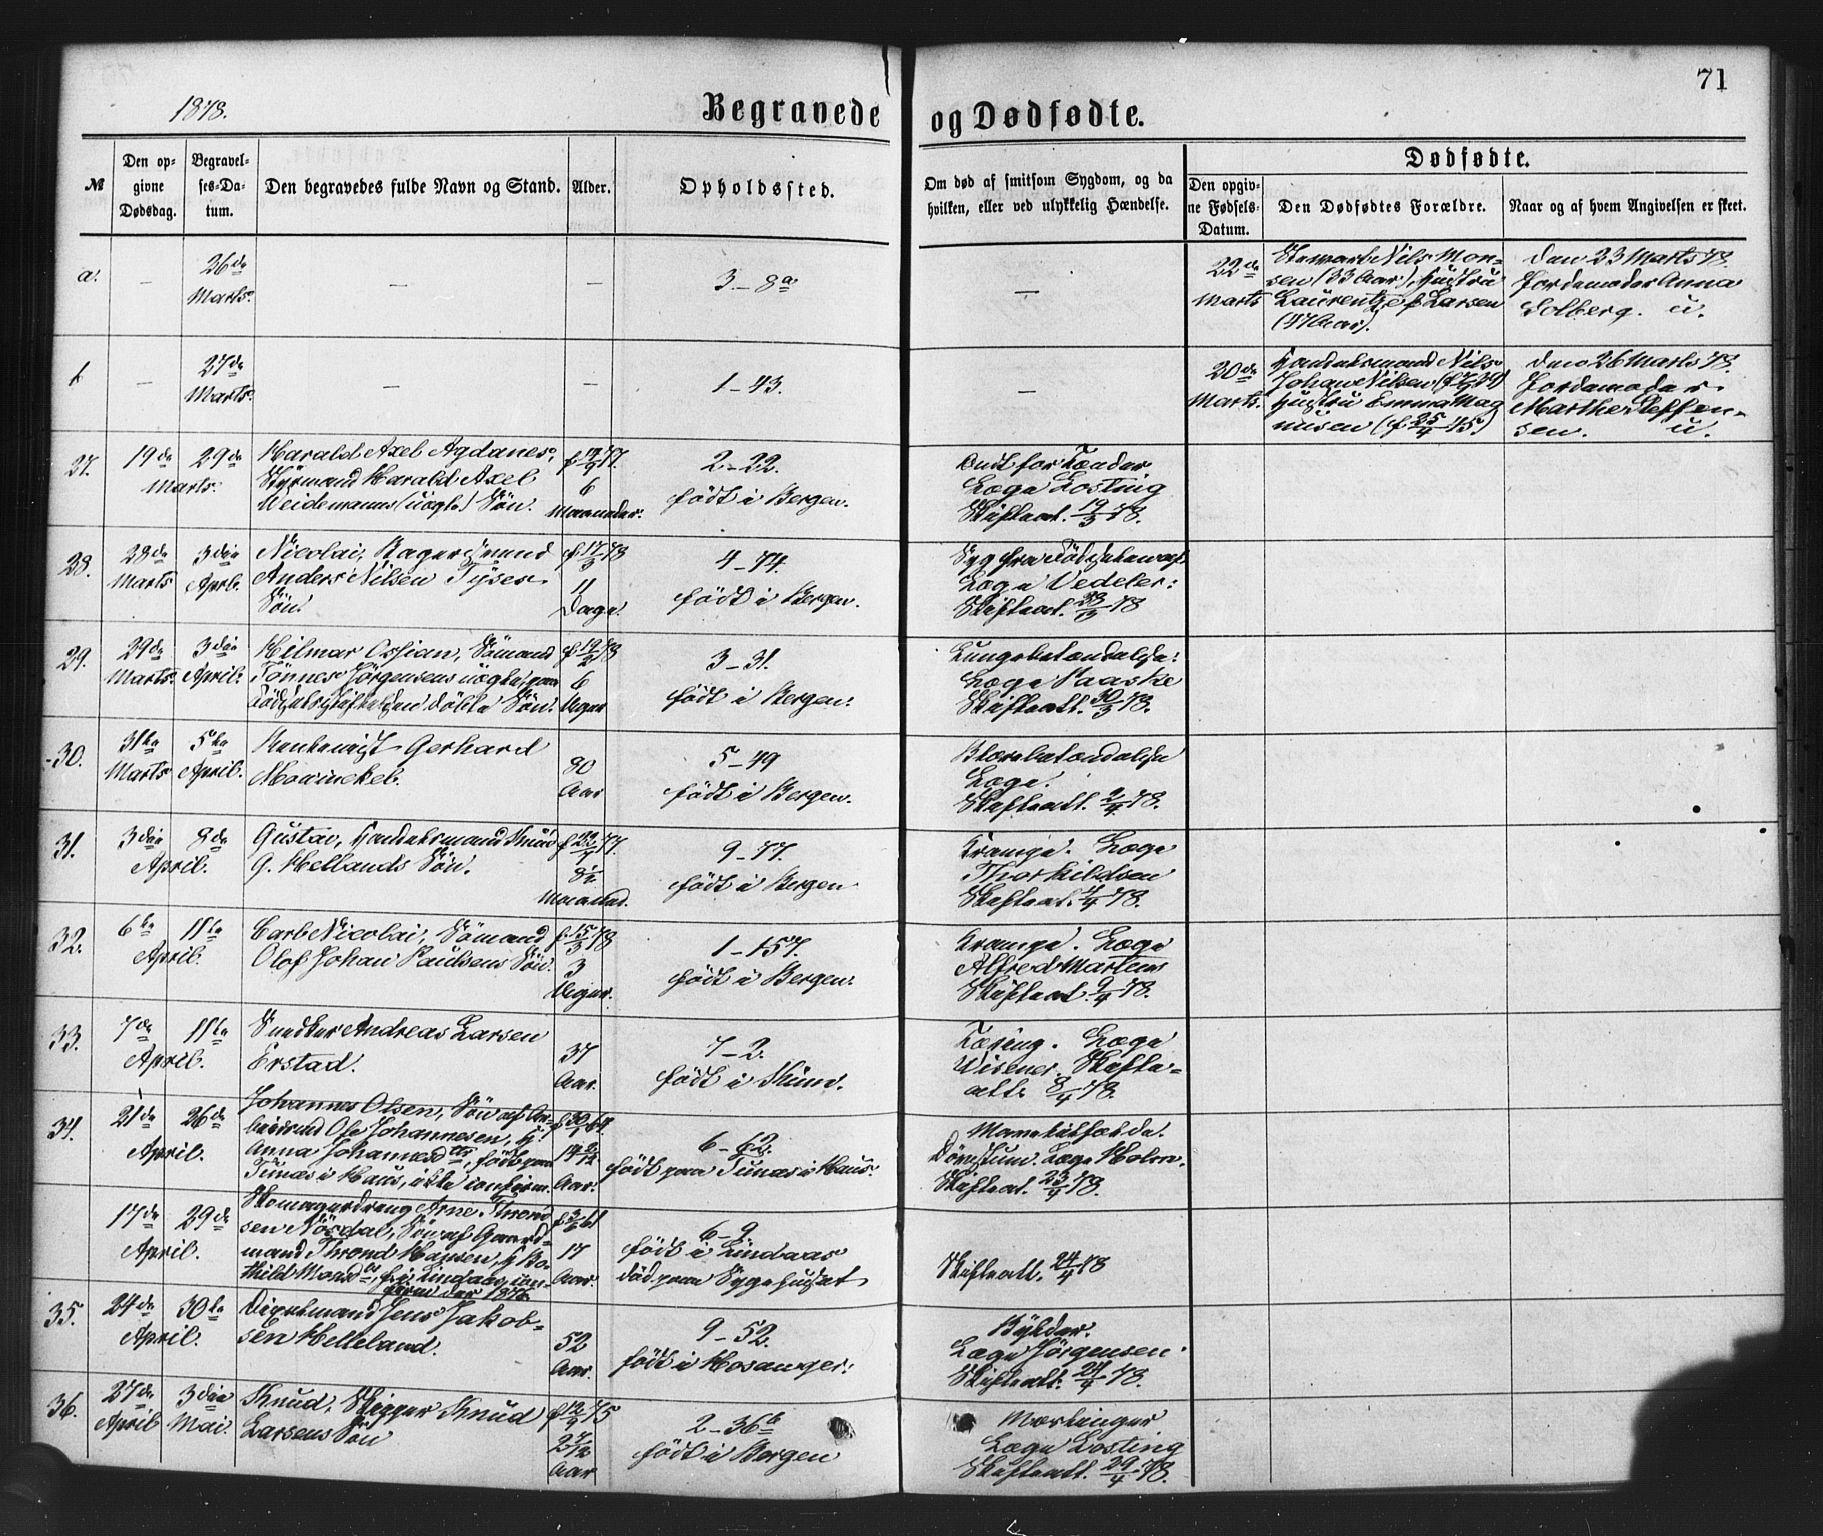 71
1878.
Begravede og Dødfødte.
№
Den opgivne Dødsdag.
Begravelses-Datum.
Den begravedes fulde Navn og Stand.
Alder.
Opholdssted.
Om død af smitsom Sygdom, og da hvilken, eller ved ulykkelig Hændelse.
Dødfødte.
Den opgivne Fødsels-Datum.
Den Dødfødtes Forældre.
Naar og af hvem Angivelsen er skeet.
a.
–
26de
Marts.
–
–
3–8a
–
22de
Marts
Stewart Nils Mon-
sen (33 Aar), Hustru
Laurentze f Larsen
(47 Aar).
Den 23 Marts 78.
Jordemoder Anna
Solberg. u.
b
–
27de
Marts.
–
–
1–43.
–
20de
Marts.
Handelsmand Nils
Johan Nilsen
Hustru Emma Mag
nusen (f 25/4 45)
Den 26 Marts 78.
Jordemoder
Marthe Steffen-
sen. u.
27.
19de
29de
Marts.
Harald Axel Agdanes,
Styrmand Harald Axel
Weidemanns (uægte) Søn.
6
Maaneder.
2–22.
født i Bergen.
Ondt for Tænder
Læge Losting
Skifteat. 19/3 78.
28.
28de
Marts
3die
April.
Nicolai, Bager
Anders Nilsen Tyses
Søn.
f 17/3 78
11
Dage.
4–74.
født i Bergen.
Syg fra Fødselen af.
Læge Vedeler:
Skifteat. 78
29.
29de
Marts.
3die
April.
Hilmar Ossian, Sømand
Tønnes Jørgensens uægte, paa
Fødselsstiftelsen døbte Søn.
f 19/2 78
6
Uger
3–31.
født i Bergen.
Lungebetændelse:
Læge Kaaske
Skifteatt. 30/3 78.
30.
31te
Marts
5te
April.
Gerhard
Mowinckel.
80
Aar
5–49
født i Bergen.
Blærebetændelse
Læge.
Skifteatt. 2/4 78.
31.
3die
8de
April.
Gustav, Handelsmand Knud
G. Hellands Søn.
77.
8½
Maaned.
9–77.
født i Bergen
Krampe. Læge
Thorkildsen
Skifteat. 4/4 78.
32.
6te
11te
April.
Carl Nicolai, Sømand
Olof Johan Paulsens Søn.
f 15/3 78
3
Uger.
1–157.
født i Bergen.
Krampe. Læge
Alfred Martens
Skifteat. 9/4 78.
33.
7de
11te
April.
Snedker Andreas Larsen
Erstad.
37
Aar.
7–2.
født i Kinn.
Tæring. Læge
Wisener. Skifte-
att. 8/4 78.
34.
21de
26de
April.
Johannes Olsen, Søn af Ar-
beidsmd Ole Johannesen, H
Anna Johannesdtr, født paa
Tunæs i Haus, ikke confirm.
14 2/12
Aar.
6–62.
født paa Tunæs i Haus.
Læge Holm.
Skifteat. 23/4 78.
17de
29de
April.
Skomagerdreng Arne Thrond
sen Nøsdal, Søn af Gaard-
mand Thrond Hansen, H Bo-
thild Monsd, f. i Lindaas, con-
firm der 1876.
61
17
Aar.
6–9.
født i Lindaas
død paa Sygehuset
Skifteatt. 24/4 78
35.
24de
30te
April.
Jens Jakob-
sen Helleland.
52
Aar.
9–52.
født i Hosanger.
Bylder.
Læge Jørgensen.
Skifteatt. 78.
36.
27de
April
3die
Mai.
Knud, Skipper Knud
Larsens Søn
75
2 7/12
Aar
2–36b
født i Bergen
Mæslinger
Læge Losting
Skifteatt. 29/4 78.